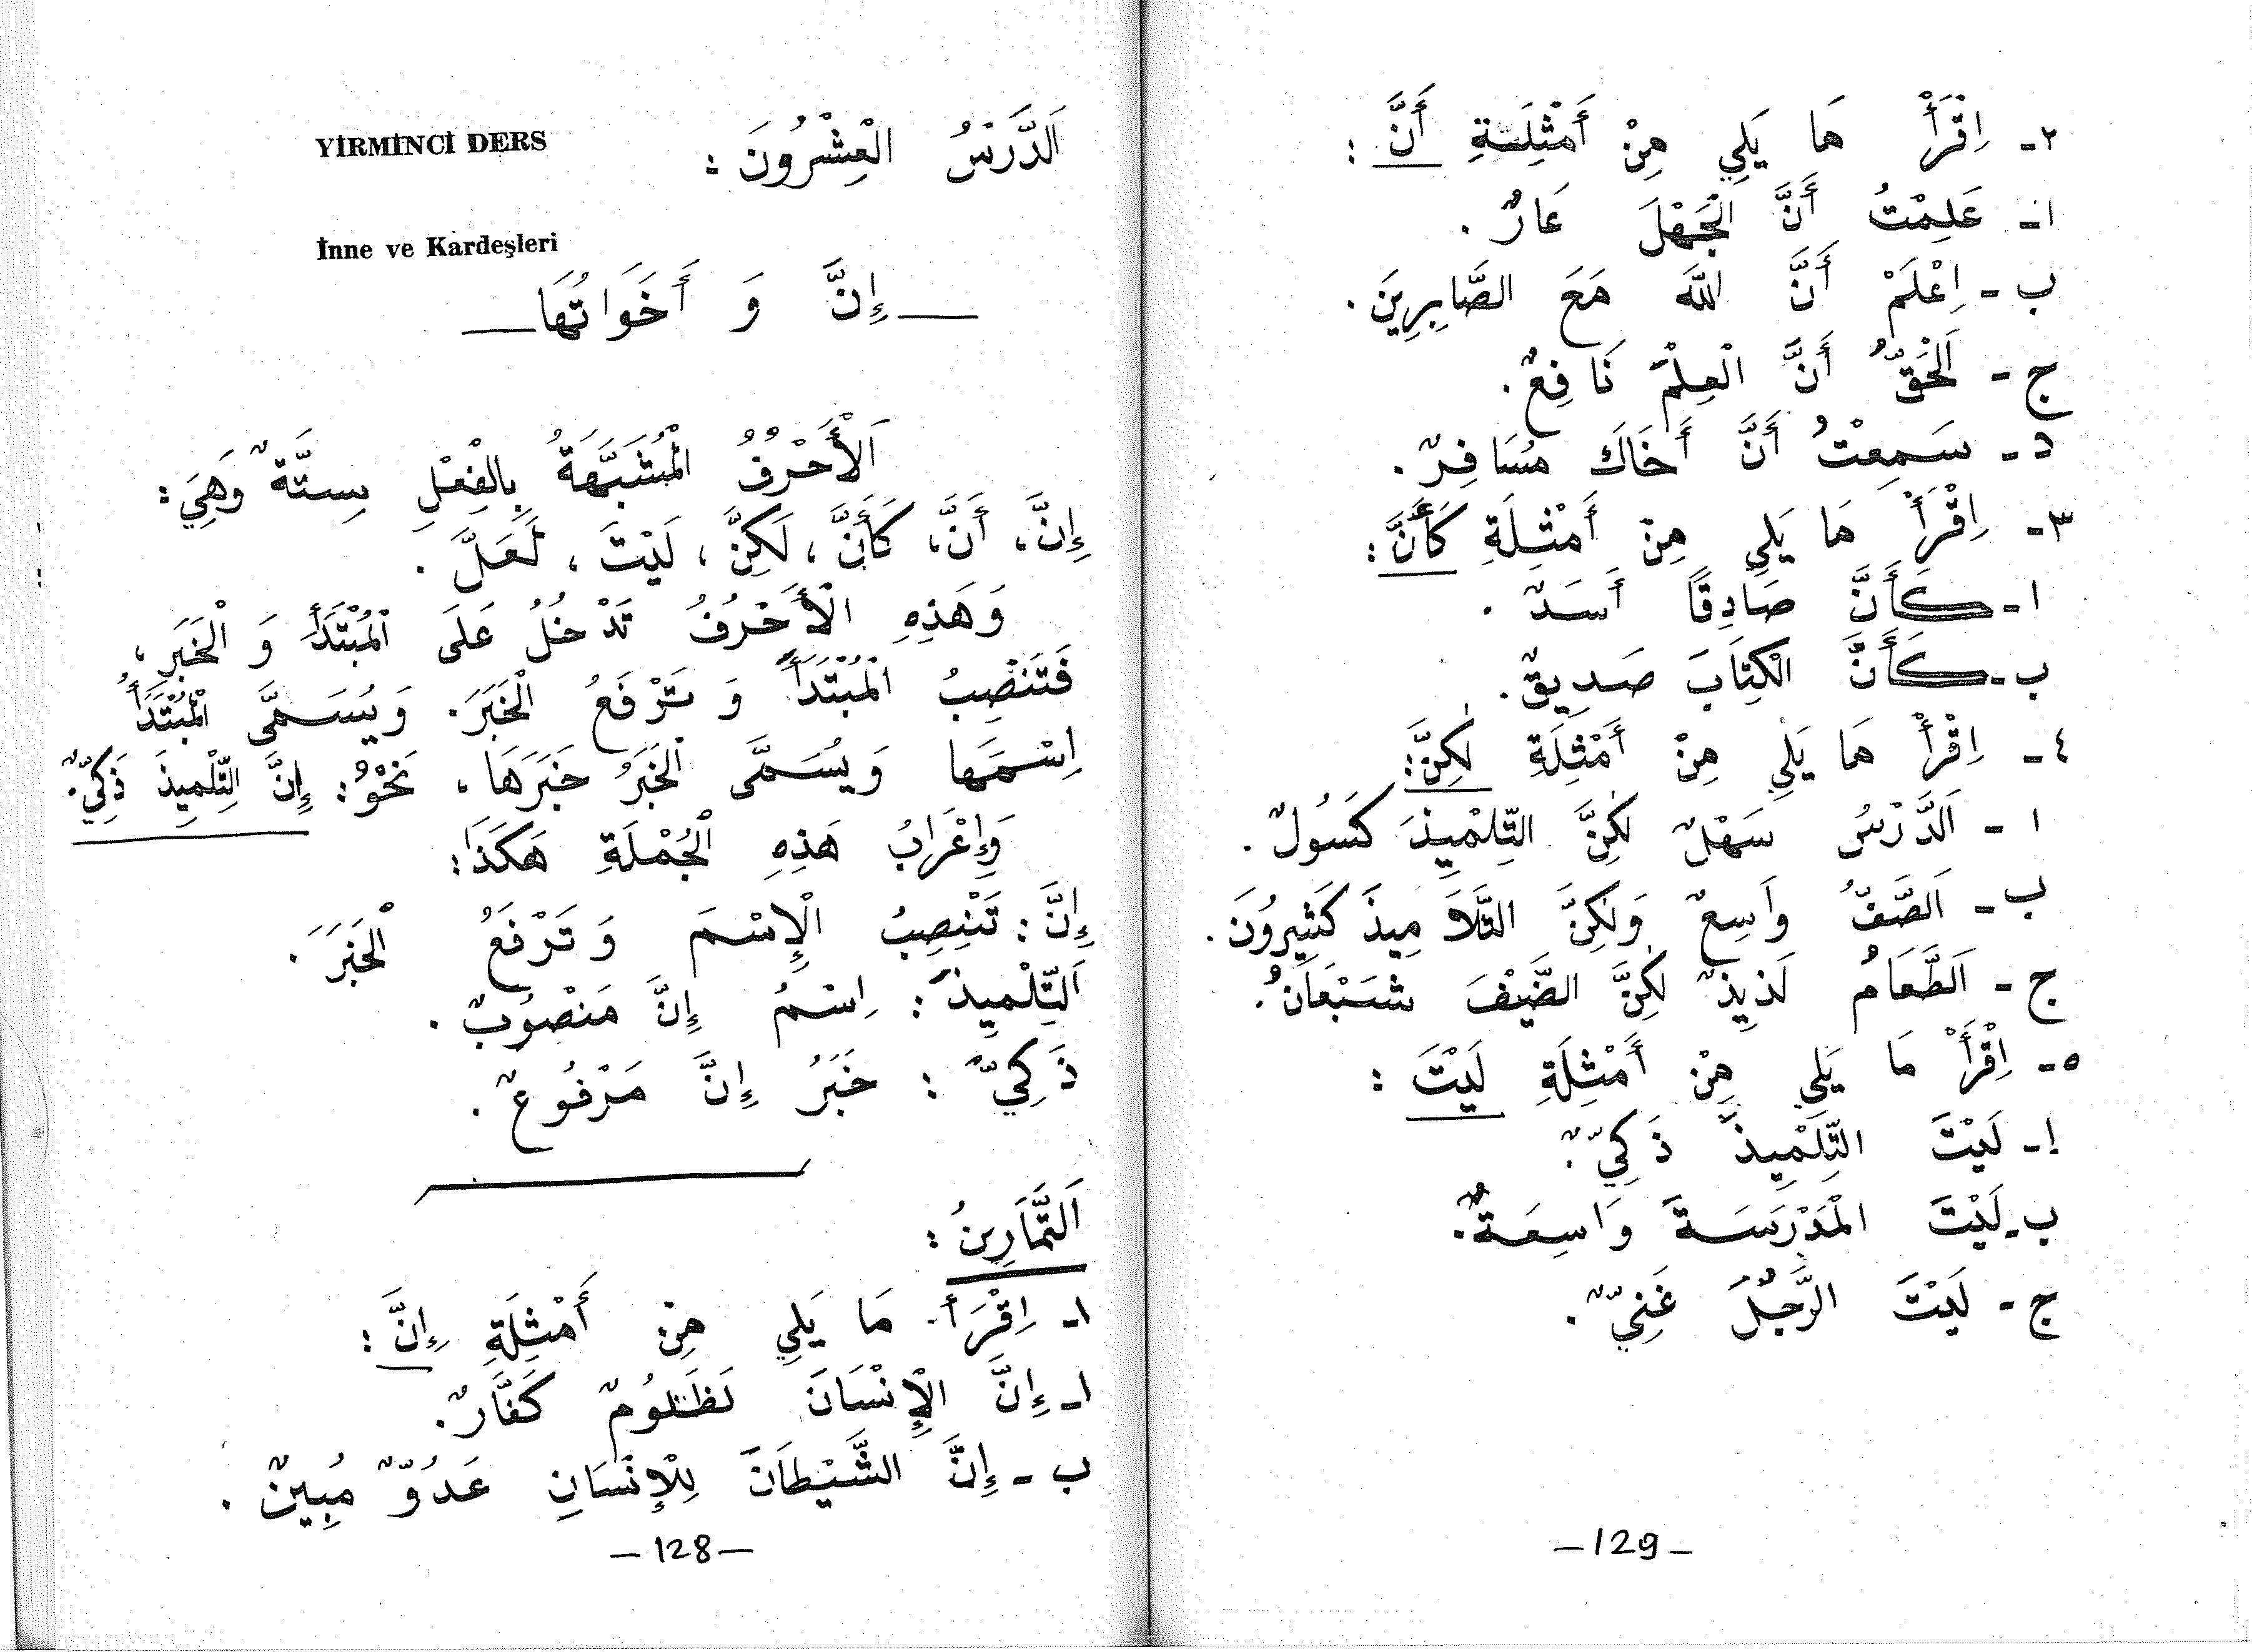 YİRMİNCİ DERS
اَلدَّرْسُ الْعِشْرُونَ :
İnne ve Kardeşleri
— إِنَّ وَ أَخَوَاتُهَا —
اَلْأَحْرُفُ الْمُشَبَّهَةُ بِالْفِعْلِ سِتَّةٌ وَهِيَ :
إِنَّ، أَنَّ، كَأَنَّ، لَكِنَّ، لَيْتَ، لَعَلَّ .
وَهَذِهِ الْأَحْرُفُ تَدْخُلُ عَلَى الْمُبْتَدَأِ وَ الْخَبَرِ،
فَتَنْصِبُ الْمُبْتَدَأَ وَ تَرْفَعُ الْخَبَرَ. وَيُسَمَّى الْمُبْتَدَأُ
اِسْمَهَا وَيُسَمَّى الْخَبَرُ خَبَرَهَا، نَحْوُ: إِنَّ التِّلْمِيذَ ذَكِيٌّ.
وَإِعْرَابُ هَذِهِ الْجُمْلَةِ هَكَذَا:
إِنَّ : تَنْصِبُ الْإِسْمَ وَ تَرْفَعُ الْخَبَرَ .
اَلتِّلْمِيذَ : اِسْمُ إِنَّ مَنْصُوبٌ .
ذَكِيٌّ : خَبَرُ إِنَّ مَرْفُوعٌ .
اَلتَّمَارِينُ :
١- اِقْرَأْ مَا يَلِي مِنْ أَمْثِلَةِ إِنَّ :
ا- إِنَّ الْإِنْسَانَ لَظَلُومٌ كَفَّارٌ.
ب - إِنَّ الشَّيْطَانَ لِلْإِنْسَانِ عَدُوٌّ مُبِينٌ .
— 128 —
٢- اِقْرَأْ مَا يَلِي مِنْ أَمْثِلَةِ أَنَّ :
ا- عَلِمْتُ أَنَّ الْجَهْلَ عَارٌ .
ب - اِعْلَمْ أَنَّ اللَّهَ مَعَ الصَّابِرِينَ .
ج - اَلْحَقُّ أَنَّ الْعِلْمَ نَافِعٌ .
د - سَمِعْتُ أَنَّ أَخَاكَ مُسَافِرٌ .
٣- اِقْرَأْ مَا يَلِي مِنْ أَمْثِلَةِ كَأَنَّ :
ا - كَأَنَّ صَادِقًا أَسَدٌ .
ب - كَأَنَّ الْكِتَابَ صَدِيقٌ .
٤- اِقْرَأْ مَا يَلِي مِنْ أَمْثِلَةِ لٰكِنَّ:
ا - اَلدَّرْسُ سَهْلٌ لٰكِنَّ التِّلْمِيذَ كَسُولٌ .
ب - اَلصَّفُّ وَاسِعٌ وَلٰكِنَّ التَّلَامِيذَ كَثِيرُونَ .
ج - اَلطَّعَامُ لَذِيذٌ لٰكِنَّ الضَّيْفَ شَبْعَانُ .
٥- اِقْرَأْ مَا يَلِي مِنْ أَمْثِلَةِ لَيْتَ :
ا- لَيْتَ التِّلْمِيذَ ذَكِيٌّ .
ب- لَيْتَ الْمَدْرَسَةَ وَاسِعَةٌ .
ج - لَيْتَ الرَّجُلَ غَنِيٌّ .
— 129 —